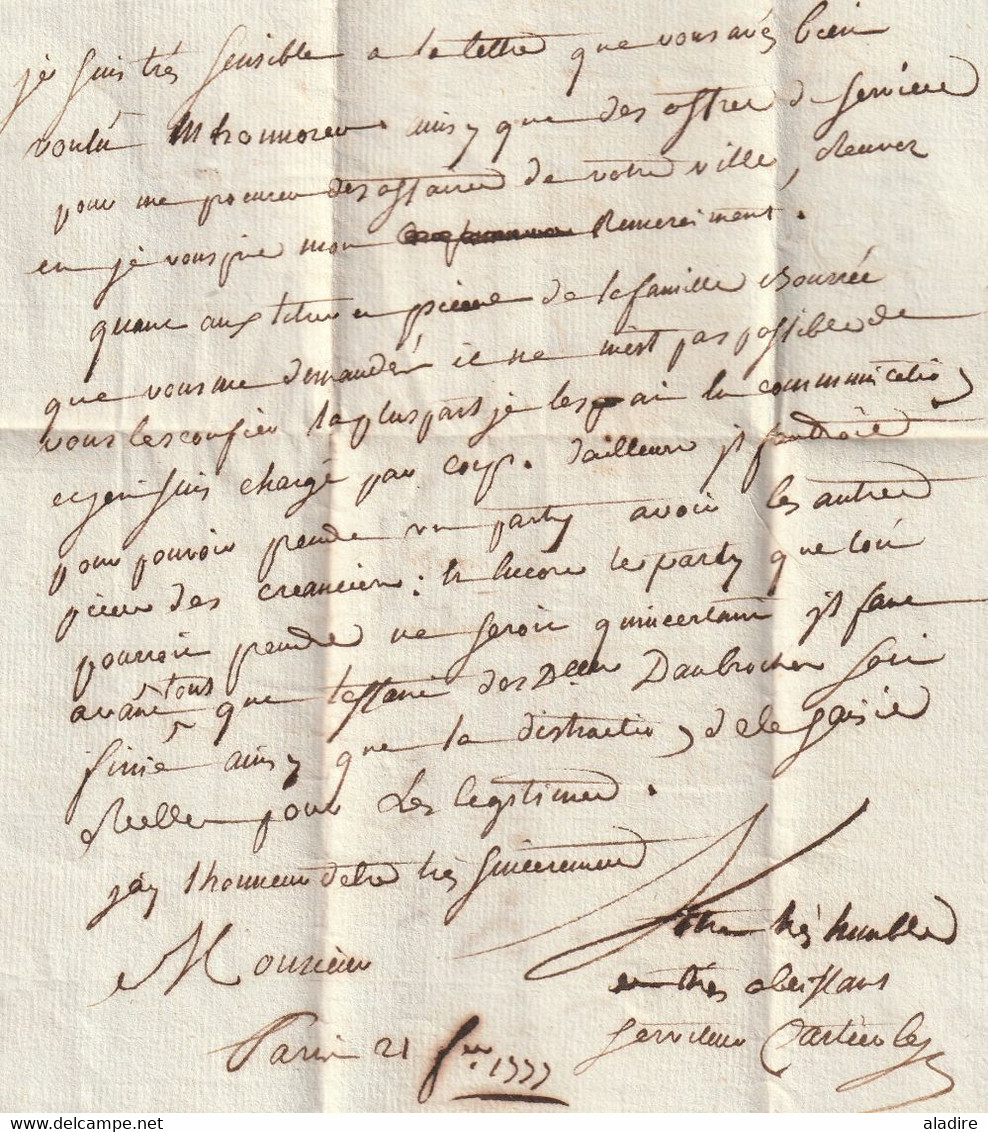 je suis tres sensible a la lettre que vous avés bien
voulu m honnorer ainsy que des offres de service
pour me procurer des affaires de votre ville, Recevez
en je vous prie mon Remerciment.
quant aux titres et pieces de la famille Bourrée
que vous me demandés il ne mest pas possible de
vous les confier la plus part je les ay en communication
et jen suis chargé par corps. dailleurs jl faudroit
pour pouvoir prendre un party avoir les autres
pieces des creanciers: et encore le party que lon
pourroit prendre ne seroit quincertain jl faut
avant tous que laffaire des Dlles Daubrocher soit
finie ainsy que la distraction de la saisie
Reelle pour Les legitimes.
jay lhonneur detre tres sincerement
Monsieur
votre trés humble
et trés obeissant
serviteur
Paris 21 1777
aladire